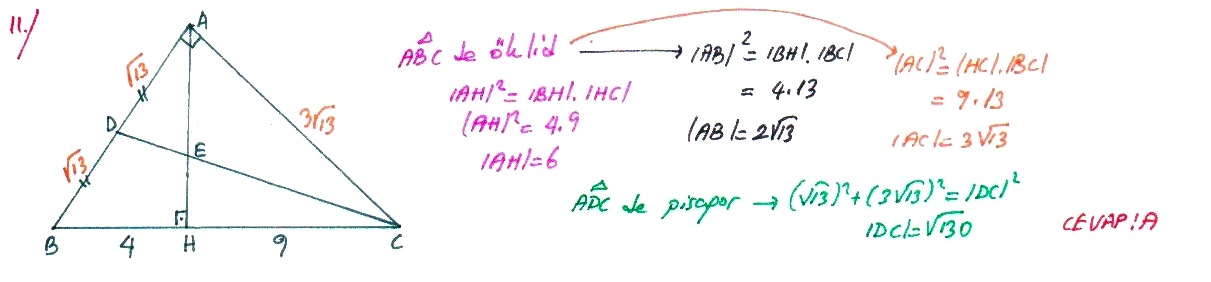 11.)
A
√13
D
√13
E
3√13
B
4
H
9
C
ABC de öklid
|AH|² = |BH|. |HC|
|AH|² = 4.9
|AH| = 6
|AB|² = |BH|. |BC|
= 4.13
|AB| = 2√13
|AC|² = |HC|. |BC|
= 9.13
|AC| = 3√13
ADC de pisagor → (√13)² + (3√13)² = |DC|²
|DC| = √130
CEVAP: A